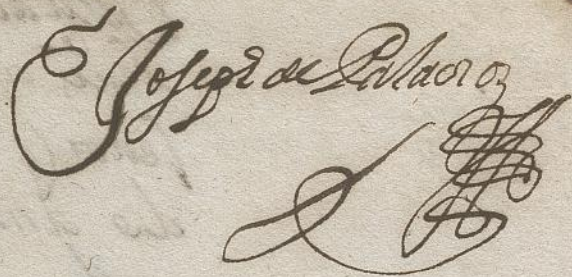 Joseph de Palacios